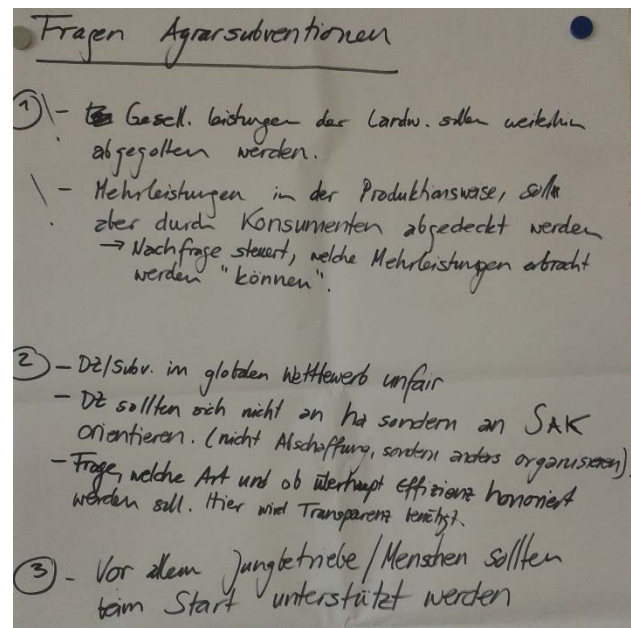 Fragen Agrarsubventionen
1 - Gesell. leistungen der Landw. sollen weiterhin
abgegolten werden.
- Mehrleistungen in der Produktionsweise, solln
aber durch Konsumenten abgedeckt werden
→ Nachfrage steuert, welche Mehrleistungen erbracht
werden "können".
2 - DZ/Subv. im globalen Wettbewerb unfair
- DZ sollten sich nicht an ha sondern an SAK
orientieren. (nicht Abschaffung, sondern anders organisieren).
- Frage, welche Art und ob überhaupt Effizienz honoriert
werden soll. Hier wird Transparenz benötigt.
3 - Vor allem Jungbetriebe/Menschen sollten
beim Start unterstützt werden